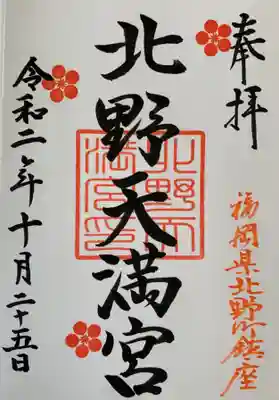 奉拝
福岡県北野町鎮座
北野天満宮
令和二年十月二十五日